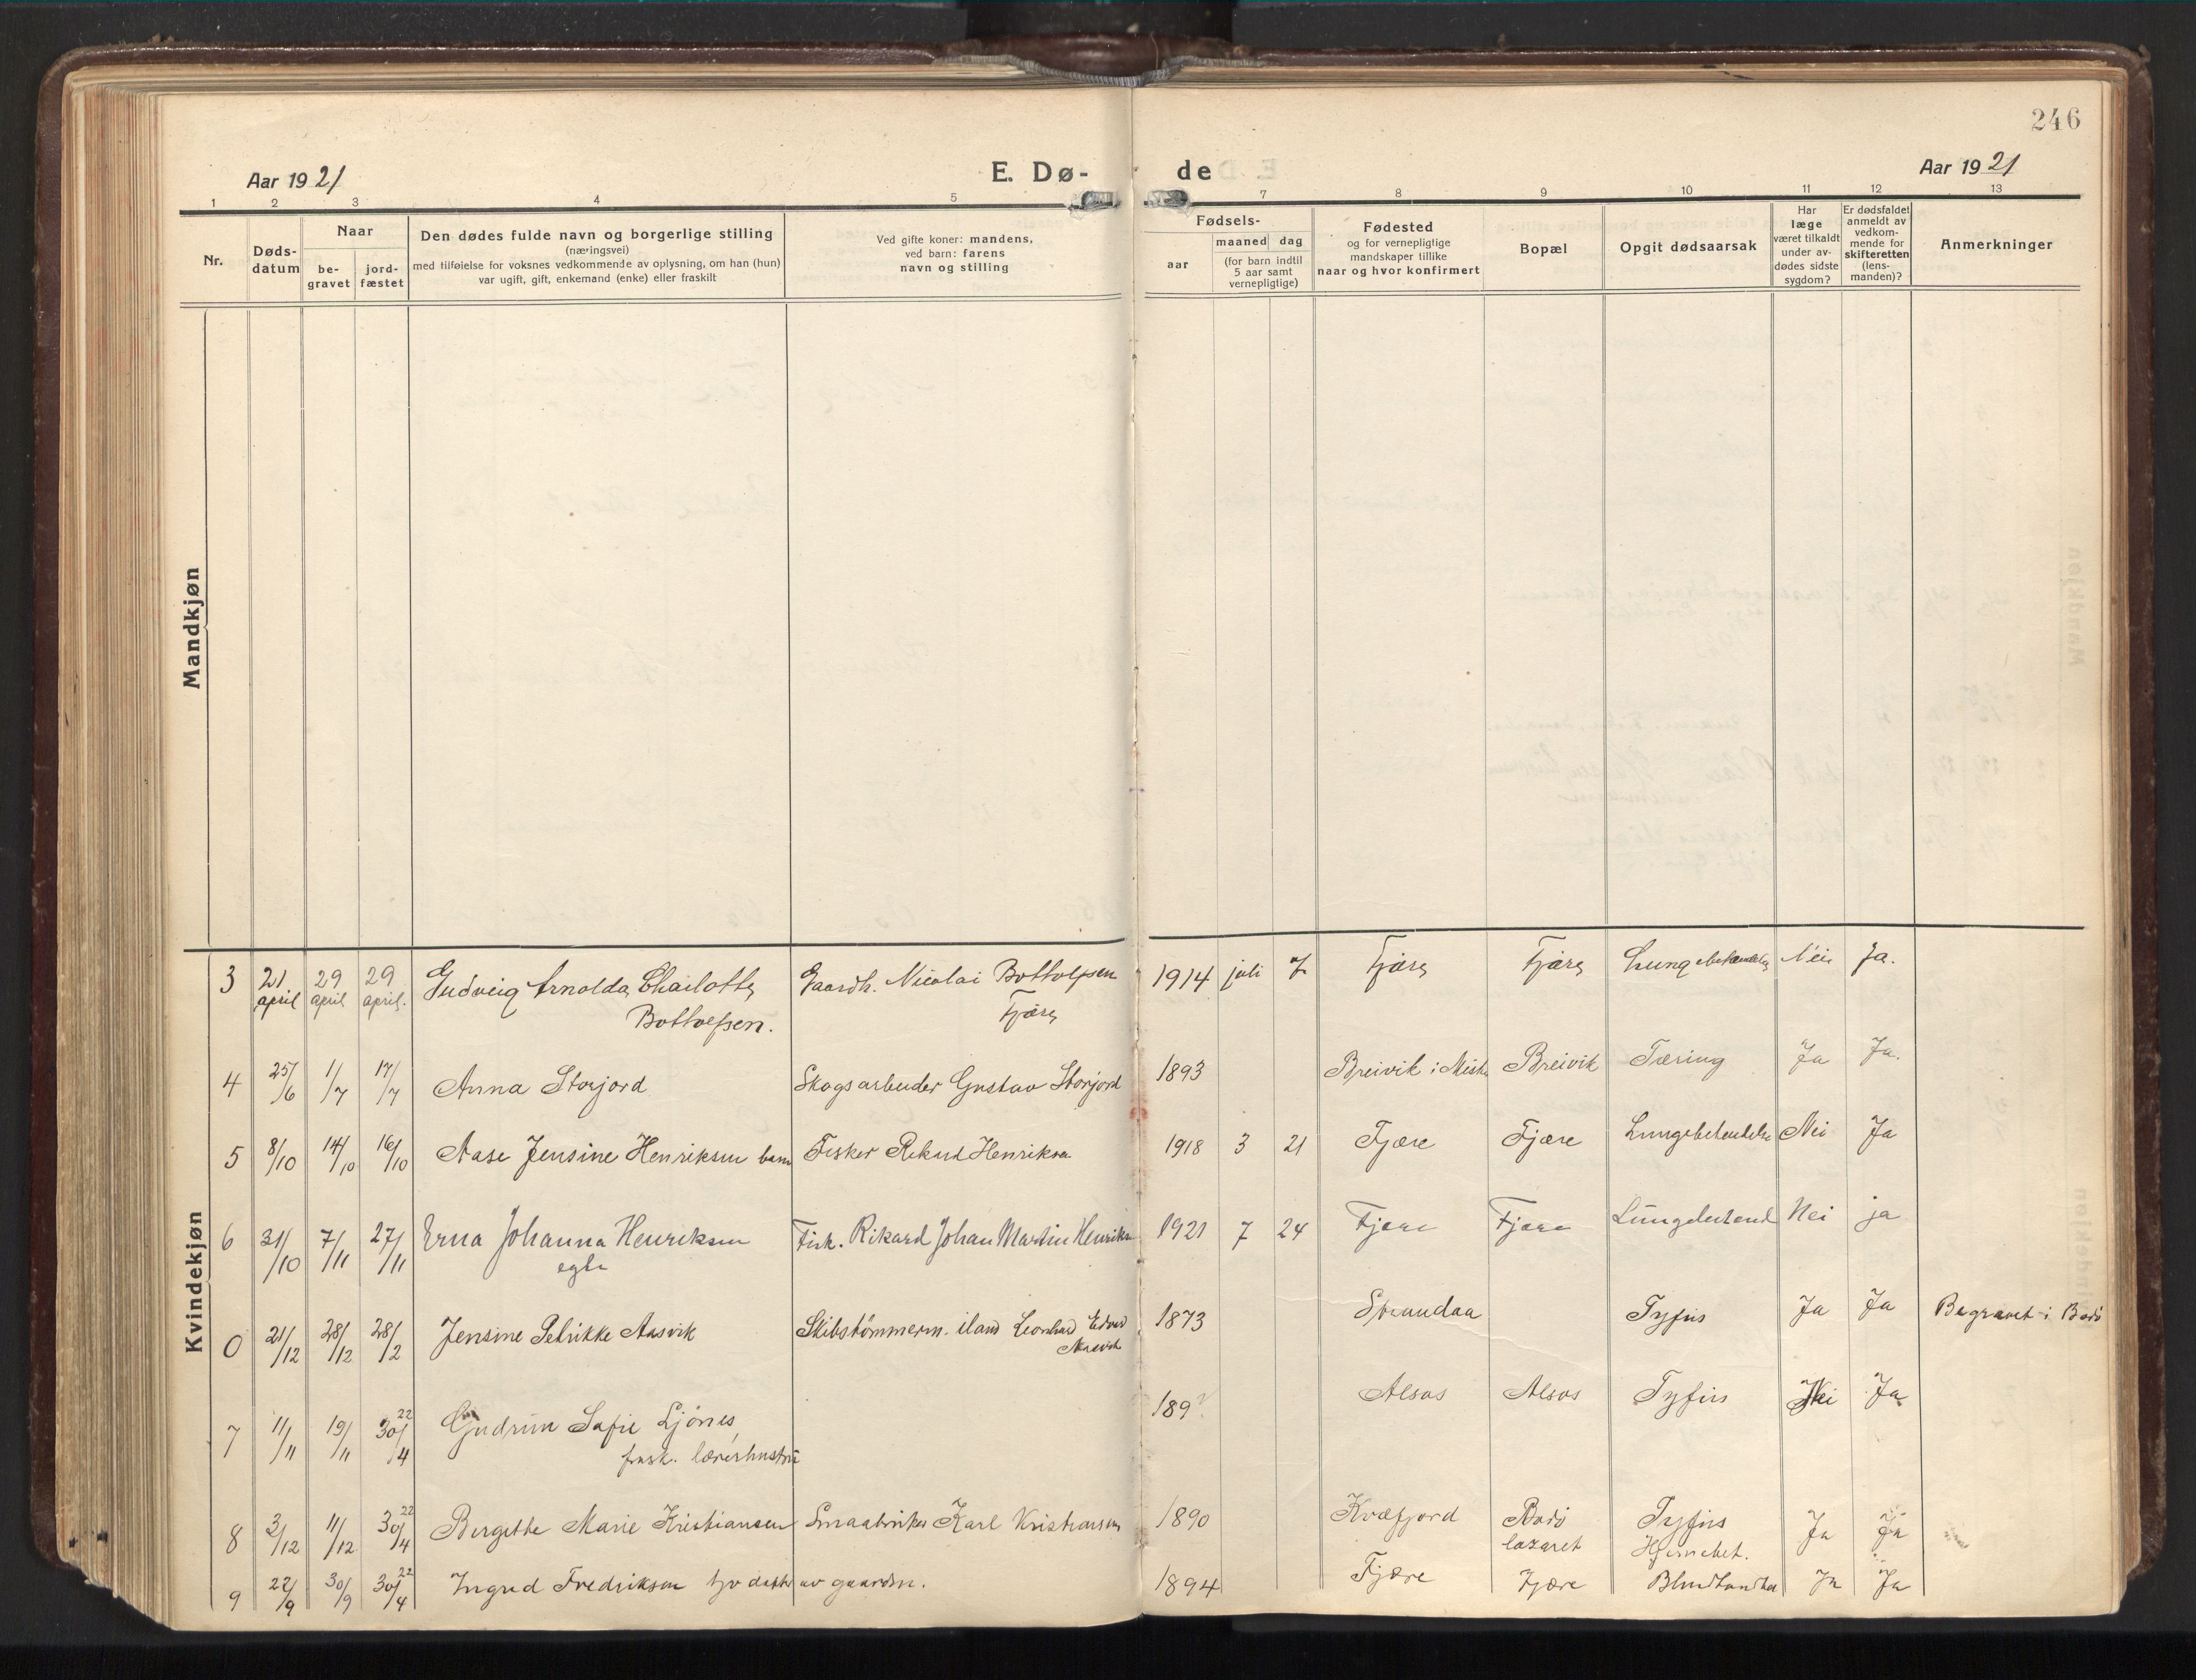 246
Aar 1921
E. Dø-
de
Aar 1921
1 2 3 4 5 7 8 9 10 11 12 13
Nr.
Døds-
datum
Naar
be-
gravet
jord-
fæstet
Den dødes fulde navn og borgerlige stilling
(næringsvei)
med tilføielse for voksnes vedkommende av oplysning, om han (hun)
var ugift, gift, enkemand (enke) eller fraskilt
Ved gifte koner: mandens,
ved barn: farens
navn og stilling
Fødsels-
aar
maaned dag
(for barn indtil
5 aar samt
vernepligtige)
Fødested
og for vernepligtige
mandskaper tillike
naar og hvor konfirmert
Bopæl
Opgit dødsaarsak
Har
læge
været tilkaldt
under av-
dødes sidste
sygdom?
Er dødsfaldet
anmeldt av
vedkom-
mende for
skifteretten
(lens-
manden)?
Anmerkninger
Mandkjøn
Kvindekjøn
3 21 april 29 april 29 april. Gudveig Arnolda Charlotte Gaardb. Nicolai Bottolfsen 1914 juli 7 Fjære Fjære Nei Ja.
Bottolfsen. Fjære
4 25/6 1/7 17/7 Anna Storjord Skogsarbeider Gustav Storjord 1893 Breivik i Breivik Tæring Ja Ja.
5 8/10 14/10 16/10 Aase Jensine Henriksen barn Fisker Rikard Henriksen 1918 3 21 Fjære Fjære Lungebetendelse Nei Ja
6 31/10 7/11 27/11 Erna Johanna Henriksen Fisk. Rikard Johan Martin Henriksen 1921 7 24 Fjære Fjære Lungebetend Nei ja
egte
0 21/12 28/12 28/2 Jensine Petrikke Aasvik Skibstömmerm. Leonhard Edvard 1873 Strandaa Tyfus Ja Ja Begravet i Bodö
Aasvik
7 11/11 19/11 30/4 22 Gudrun Sofie Ljönes, 189? Alsos Alsos Tyfus Nei Ja
frask. lærerhustru
8 3/12 11/12 30/4 22 Bergitte Marie Kristiansen Smaabruker Karl Kristiansen 1890 Kvæfjord Bodö Tyfus Ja Ja
lazaret Hjernebet.
9 22/9 30/9 30/4 22 Ingrid Fredriksen av gaardbr. 1894 Fjære Fjære Ja Ja